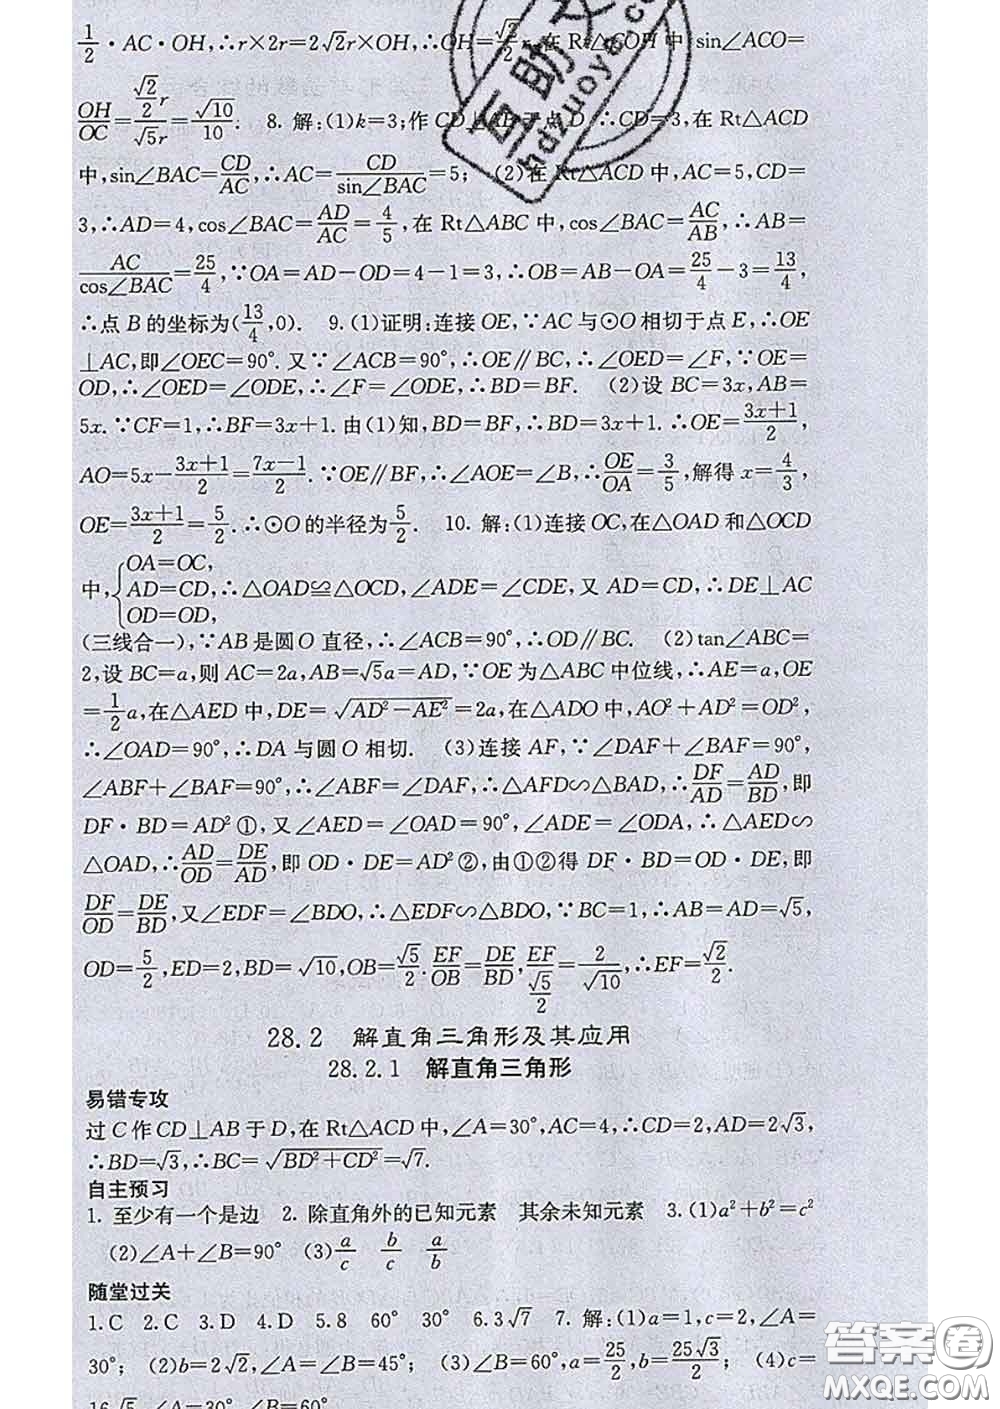 1/2·AC·OH,∴r×2r=2√2r×OH,∴OH=√2/2 r.在Rt△COH中,sin∠ACO=
OH/OC=(√2/2 r)/(√5r)=√10/10; 8. 解:(1)k=3;作CD⊥AB于点D,∴CD=3,在Rt△ACD
中,sin∠BAC=CD/AC,∴AC=CD/sin∠BAC=5; (2)在Rt△ACD中,AC=5,CD=
3,∴AD=4,cos∠BAC=AD/AC=4/5,在Rt△ABC中,cos∠BAC=AC/AB,∴AB=
AC/cos∠BAC=25/4,∵OA=AD-OD=4-1=3,∴OB=AB-OA=25/4-3=13/4,
∴点B的坐标为(13/4,0). 9.(1)证明:连接OE,∵AC与⊙O相切于点E,∴OE
⊥AC,即∠OEC=90°.又∵∠ACB=90°,∴OE∥BC,∴∠OED=∠F,∵OE=
OD,∴∠OED=∠ODE,∴∠F=∠ODE,∴BD=BF. (2)设BC=3x,AB=
5x.∵CF=1,∴BF=3x+1.由(1)知,BD=BF,∴BD=3x+1.∴OE=(3x+1)/2,
AO=5x-(3x+1)/2=(7x-1)/2.∵OE∥BF,∴∠AOE=∠B,∴OE/OA=3/5,解得x=4/3,
OE=(3x+1)/2=5/2.∴⊙O的半径为5/2. 10. 解:(1)连接OC,在△OAD和△OCD
中,{OA=OC,
AD=CD,∴△OAD≌△OCD,∠ADE=∠CDE,又AD=CD,∴DE⊥AC
OD=OD,
(三线合一),∵AB是圆O直径,∴∠ACB=90°,∴OD∥BC. (2)tan∠ABC=
2,设BC=a,则AC=2a,AB=√5a=AD,∵OE为△ABC中位线,∴AE=a,OE
=1/2 a,在△AED中,DE=√(AD²-AE²)=2a,在△ADO中,AO²+AD²=OD²,
∴∠OAD=90°,∴DA与圆O相切. (3)连接AF,∵∠DAF+∠BAF=90°,
∠ABF+∠BAF=90°,∴∠ABF=∠DAF,∴△AFD∽△BAD,∴DF/AD=AD/BD,即
DF·BD=AD²①,又∠AED=∠OAD=90°,∠ADE=∠ODA,∴△AED∽
△OAD,∴AD/OD=DE/AD,即OD·DE=AD²②,由①②得DF·BD=OD·DE,即
DF/OD=DE/BD,又∠EDF=∠BDO,∴△EDF∽△BDO,∵BC=1,∴AB=AD=√5,
OD=5/2,ED=2,BD=√10,OB=√5/2.EF/OB=DE/BD,EF/(√5/2)=2/√10,∴EF=√2/2.
28.2 解直角三角形及其应用
28.2.1 解直角三角形
易错专攻
过C作CD⊥AB于D,在Rt△ACD中,∠A=30°,AC=4,∴CD=2,AD=2√3,
∴BD=√3,∴BC=√(BD²+CD²)=√7.
自主预习
1. 至少有一个是边 2. 除直角外的已知元素 其余未知元素 3.(1)a²+b²=c²
(2)∠A+∠B=90° (3)a/c b/c a/b
随堂过关
1.C 2.C 3.D 4.D 5.8 60° 30° 6.3√7 7. 解:(1)a=1,c=2,∠A=
30°; (2)b=2√2,∠A=∠B=45°; (3)∠B=60°,a=25/2,b=25√3/2; (4)c=
16√5,∠A=30°,∠B=60°
答案圈
MXQE.COM